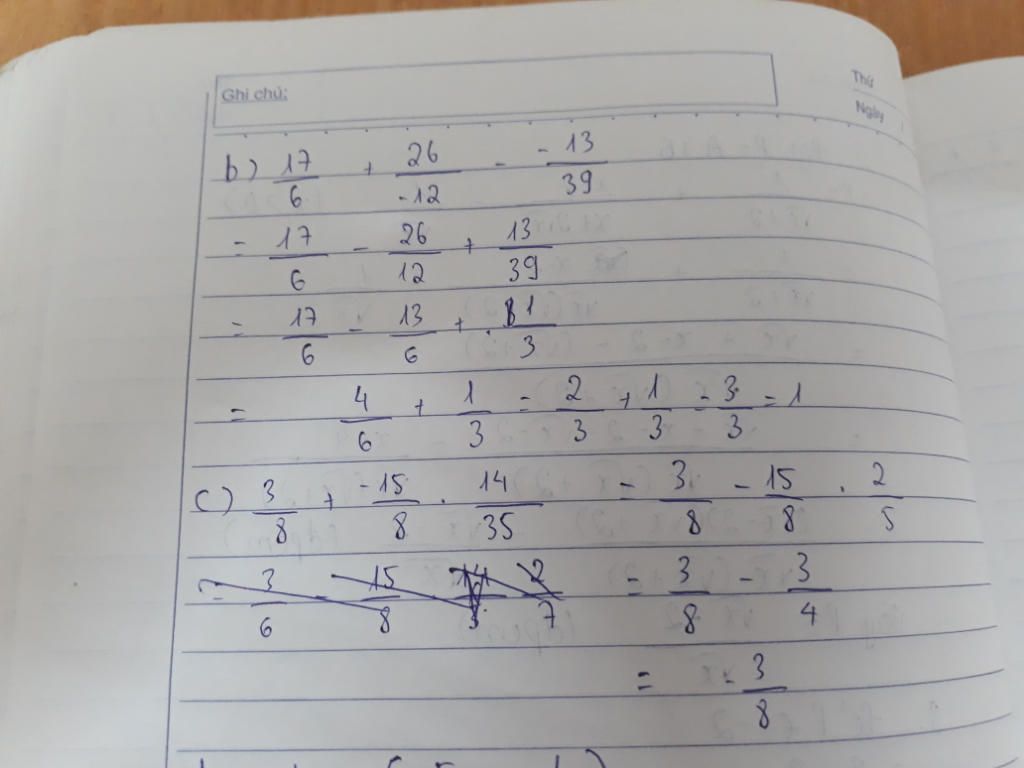 Ghi chú:
Thứ
Ngày
b) 17/6 + 26/-12 - -13/39
= 17/6 - 26/12 + 13/39
= 17/6 - 13/6 + 1/3
= 4/6 + 1/3 = 2/3 + 1/3 = 3/3 = 1
c) 3/8 + -15/8 . 14/35 = 3/8 - 15/8 . 2/5
= 3/6 - 15/8 2/7 = 3/8 - 3/4
= -3/8